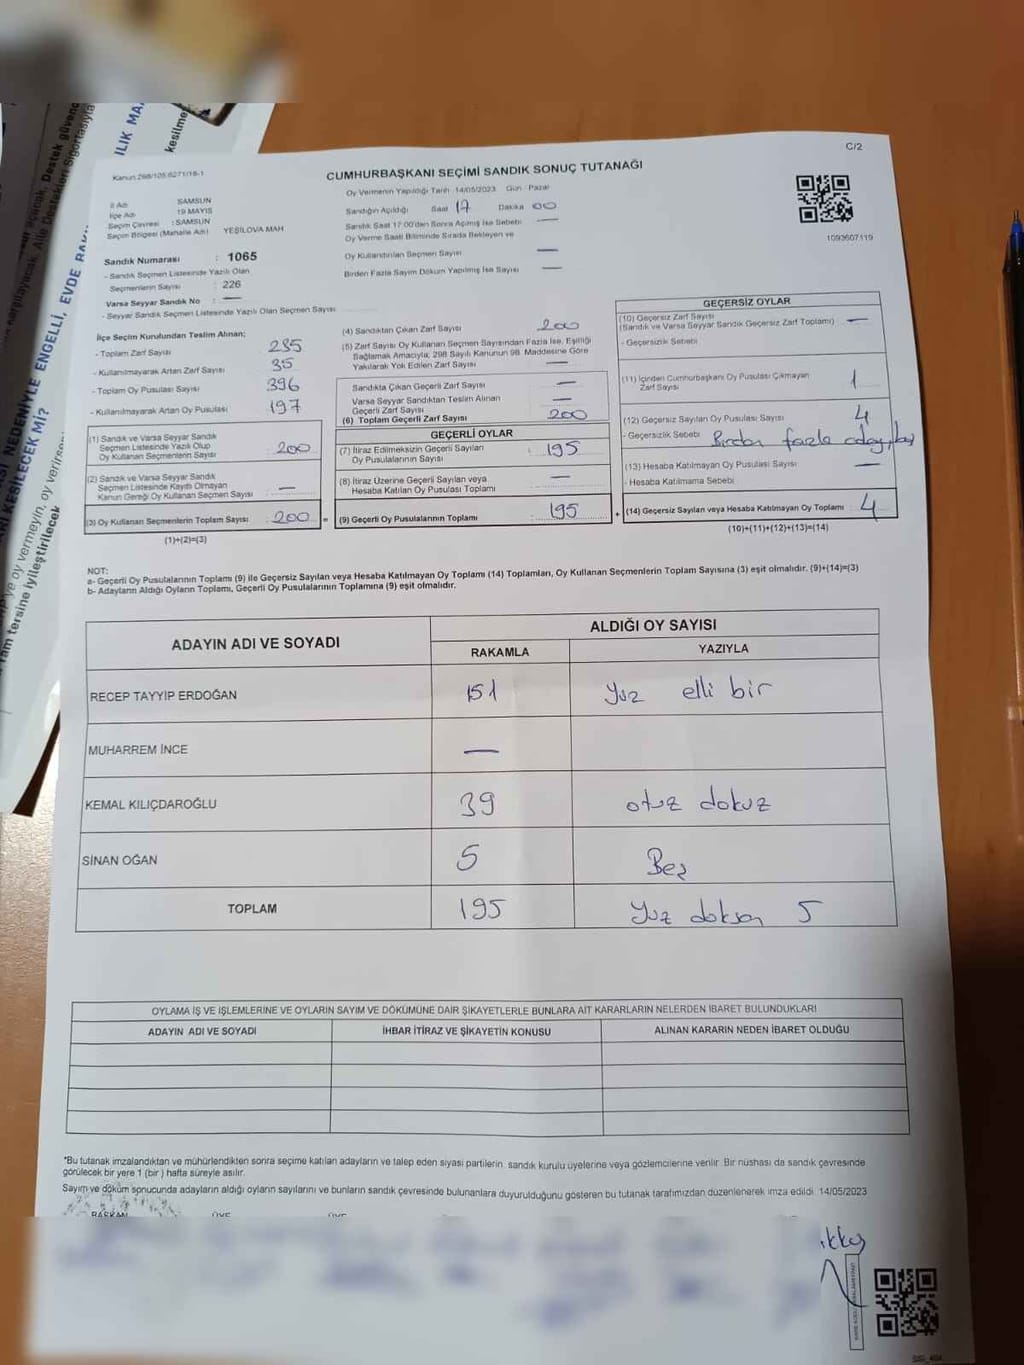 C/2
Kanun 298/105 6271/18-1
CUMHURBAŞKANI SEÇİMİ SANDIK SONUÇ TUTANAĞI
Oy Vermenin Yapıldığı Tarih 14/05/2023 Gün Pazar
İl Adı SAMSUN
İlçe Adı 19 MAYIS
Seçim Çevresi : SAMSUN
Seçim Bölgesi (Mahalle Adı) YEŞİLOVA MAH
Sandığın Açıldığı Saat 17 Dakika 00
Sandık Saat 17:00'den Sonra Açılmış İse Sebebi —
Oy Verme Saati Bitiminde Sırada Bekleyen ve
Oy Kullandırılan Seçmen Sayısı —
Birden Fazla Sayım Döküm Yapılmış İse Sayısı —
1093607119
Sandık Numarası : 1065
- Sandık Seçmen Listesinde Yazılı Olan
Seçmenlerin Sayısı : 226
Varsa Seyyar Sandık No : —
- Seyyar Sandık Seçmen Listesinde Yazılı Olan Seçmen Sayısı
İlçe Seçim Kurulundan Teslim Alınan;
- Toplam Zarf Sayısı 235
- Kullanılmayarak Artan Zarf Sayısı 35
- Toplam Oy Pusulası Sayısı 396
- Kullanılmayarak Artan Oy Pusulası 197
(1) Sandık ve Varsa Seyyar Sandık
Seçmen Listesinde Yazılı Olup
Oy Kullanan Seçmenlerin Sayısı 200
(2) Sandık ve Varsa Seyyar Sandık
Seçmen Listesinde Kayıtlı Olmayan
Kanun Gereği Oy Kullanan Seçmen Sayısı —
(3) Oy Kullanan Seçmenlerin Toplam Sayısı : 200
(1)+(2)=(3)
(4) Sandıktan Çıkan Zarf Sayısı 200
(5) Zarf Sayısı Oy Kullanan Seçmen Sayısından Fazla İse, Eşitliği
Sağlamak Amacıyla; 298 Sayılı Kanunun 98. Maddesine Göre
Yakılarak Yok Edilen Zarf Sayısı —
Sandıkta Çıkan Geçerli Zarf Sayısı —
Varsa Seyyar Sandıktan Teslim Alınan
Geçerli Zarf Sayısı —
(6) Toplam Geçerli Zarf Sayısı 200
GEÇERLİ OYLAR
(7) İtiraz Edilmeksizin Geçerli Sayılan
Oy Pusulalarının Sayısı : 195
(8) İtiraz Üzerine Geçerli Sayılan veya
Hesaba Katılan Oy Pusulası Toplamı —
= (9) Geçerli Oy Pusulalarının Toplamı : 195
GEÇERSİZ OYLAR
(10) Geçersiz Zarf Sayısı
(Sandık ve Varsa Seyyar Sandık Geçersiz Zarf Toplamı) —
- Geçersizlik Sebebi
(11) İçinden Cumhurbaşkanı Oy Pusulası Çıkmayan
Zarf Sayısı 1
(12) Geçersiz Sayılan Oy Pusulası Sayısı 4
- Geçersizlik Sebebi Birden fazla
(13) Hesaba Katılmayan Oy Pusulası Sayısı —
- Hesaba Katılmama Sebebi
+ (14) Geçersiz Sayılan veya Hesaba Katılmayan Oy Toplamı 4
(10)+(11)+(12)+(13)=(14)
NOT:
a- Geçerli Oy Pusulalarının Toplamı (9) ile Geçersiz Sayılan veya Hesaba Katılmayan Oy Toplamı (14) Toplamları, Oy Kullanan Seçmenlerin Toplam Sayısına (3) eşit olmalıdır. (9)+(14)=(3)
b- Adayların Aldığı Oyların Toplamı, Geçerli Oy Pusulalarının Toplamına (9) eşit olmalıdır.
ADAYIN ADI VE SOYADI
ALDIĞI OY SAYISI
RAKAMLA YAZIYLA
RECEP TAYYIP ERDOĞAN 151 Yuz elli bir
MUHARREM İNCE —
KEMAL KILIÇDAROĞLU 39 otuz dokuz
SİNAN OĞAN 5 Beş
TOPLAM 195 Yuz doksan 5
OYLAMA İŞ VE İŞLEMLERİNE VE OYLARIN SAYIM VE DÖKÜMÜNE DAİR ŞİKAYETLERLE BUNLARA AİT KARARLARIN NELERDEN İBARET BULUNDUKLARI
ADAYIN ADI VE SOYADI İHBAR İTİRAZ VE ŞİKAYETİN KONUSU ALINAN KARARIN NEDEN İBARET OLDUĞU
*Bu tutanak imzalandıktan ve mühürlendikten sonra seçime katılan adayların ve talep eden siyasi partilerin, sandık kurulu üyelerine veya gözlemcilerine verilir. Bir nüshası da sandık çevresinde
görülecek bir yere 1 (bir) hafta süreyle asılır.
Sayım ve döküm sonucunda adayların aldığı oyların sayılarını ve bunların sandık çevresinde bulunanlara duyurulduğunu gösteren bu tutanak tarafımızdan düzenlenerek imza edildi. 14/05/2023
BAŞKAN ÜYE ÜYE